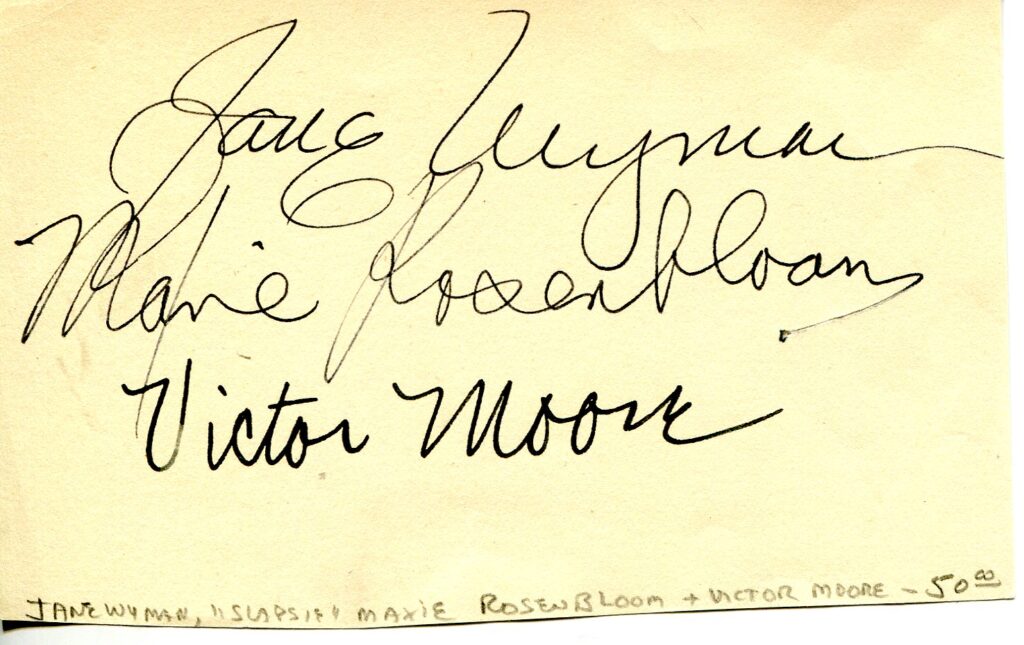 Jane Wyman
Maxie Rosenbloom
Victor Moore
JANE WYMAN, "SLAPSIE" MAXIE ROSENBLOOM + VICTOR MOORE - 50 00